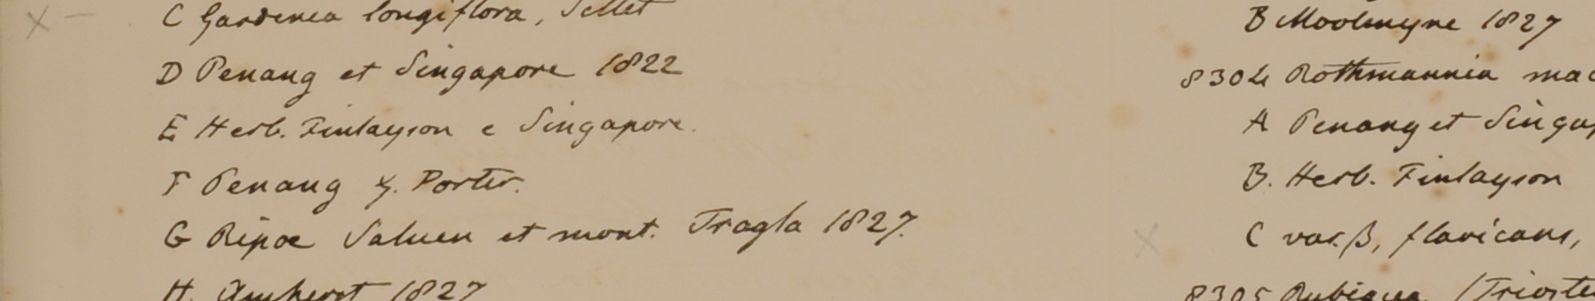 C Gardenia longiflora,
D Penang et Singapore 1822
E Herb. Finlayson e Singapore.
F Penang G. Porter.
G Ripae Saluen et mont. Tragla 1827.
H. Amherst 1827
B Moolmyne 1827
8304 Rothmannia mac
A Penang et Singap
B. Herb. Finlayson
C var. β, flavicans,
8305